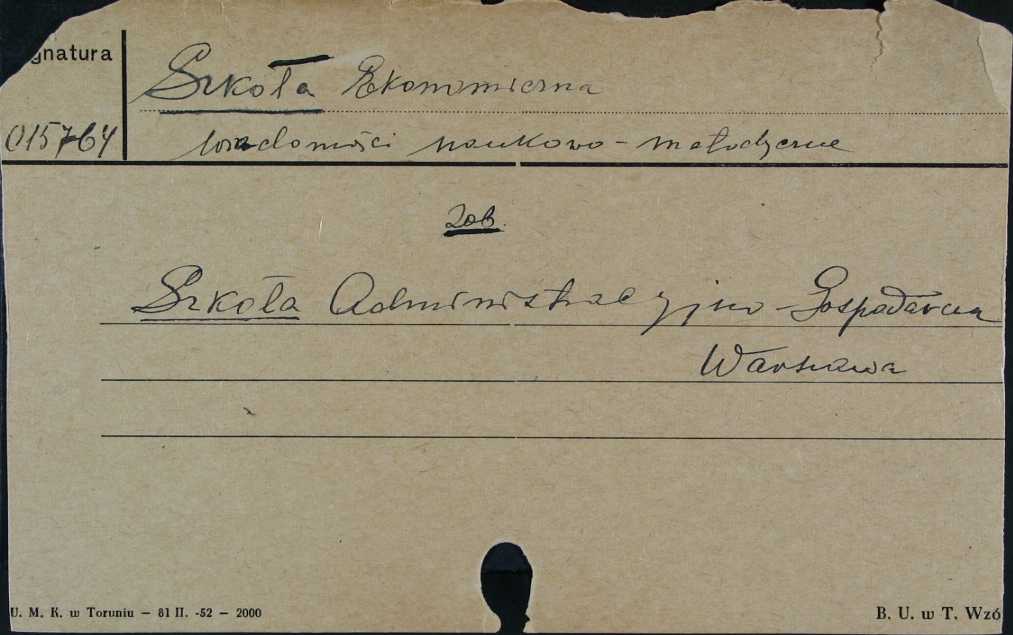 gnatura
Szkoła Ekonomiczna
015764
wiadomości naukowo - metodyczne
Zob.
Szkoła Administracyjno - Gospodarcza
Warszawa
U. M. K. w Toruniu — 81 II. -52 — 2000
B. U. w T. Wzó